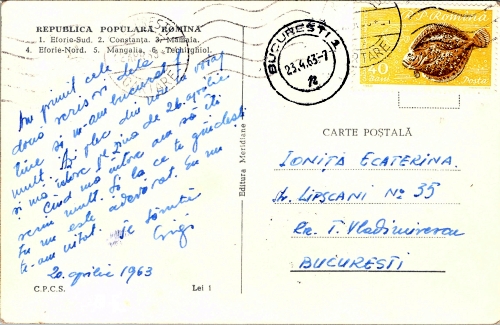 REPUBLICA POPULARĂ ROMÎNĂ
1. Eforie-Sud. 2. Constanța. 3. Mamaia.
4. Eforie-Nord. 5. Mangalia. 6. Techirghiol.
Am primit cele
două scrisori dela
tine si m-am bucurat
mult. Azi plec din nou
si mă întorc pe ziua de 26 aprilie.
Cînd mă întorc am să îți
scriu mult. Și la ce te gîndești
tu nu este adevărat. Eu nu
te-am uitat. Te
20 aprilie 1963
C.P.C.S.
Lei 1
Editura Meridiane
BUCUREȘTI 1
23.4.63-7
Romina
40
Bani
Posta
CARTE POȘTALĂ
IONIȚA ECATERINA.
Str. LIPSCANI No 35
Ra. T. Vladimirescu
BUCUREȘTI